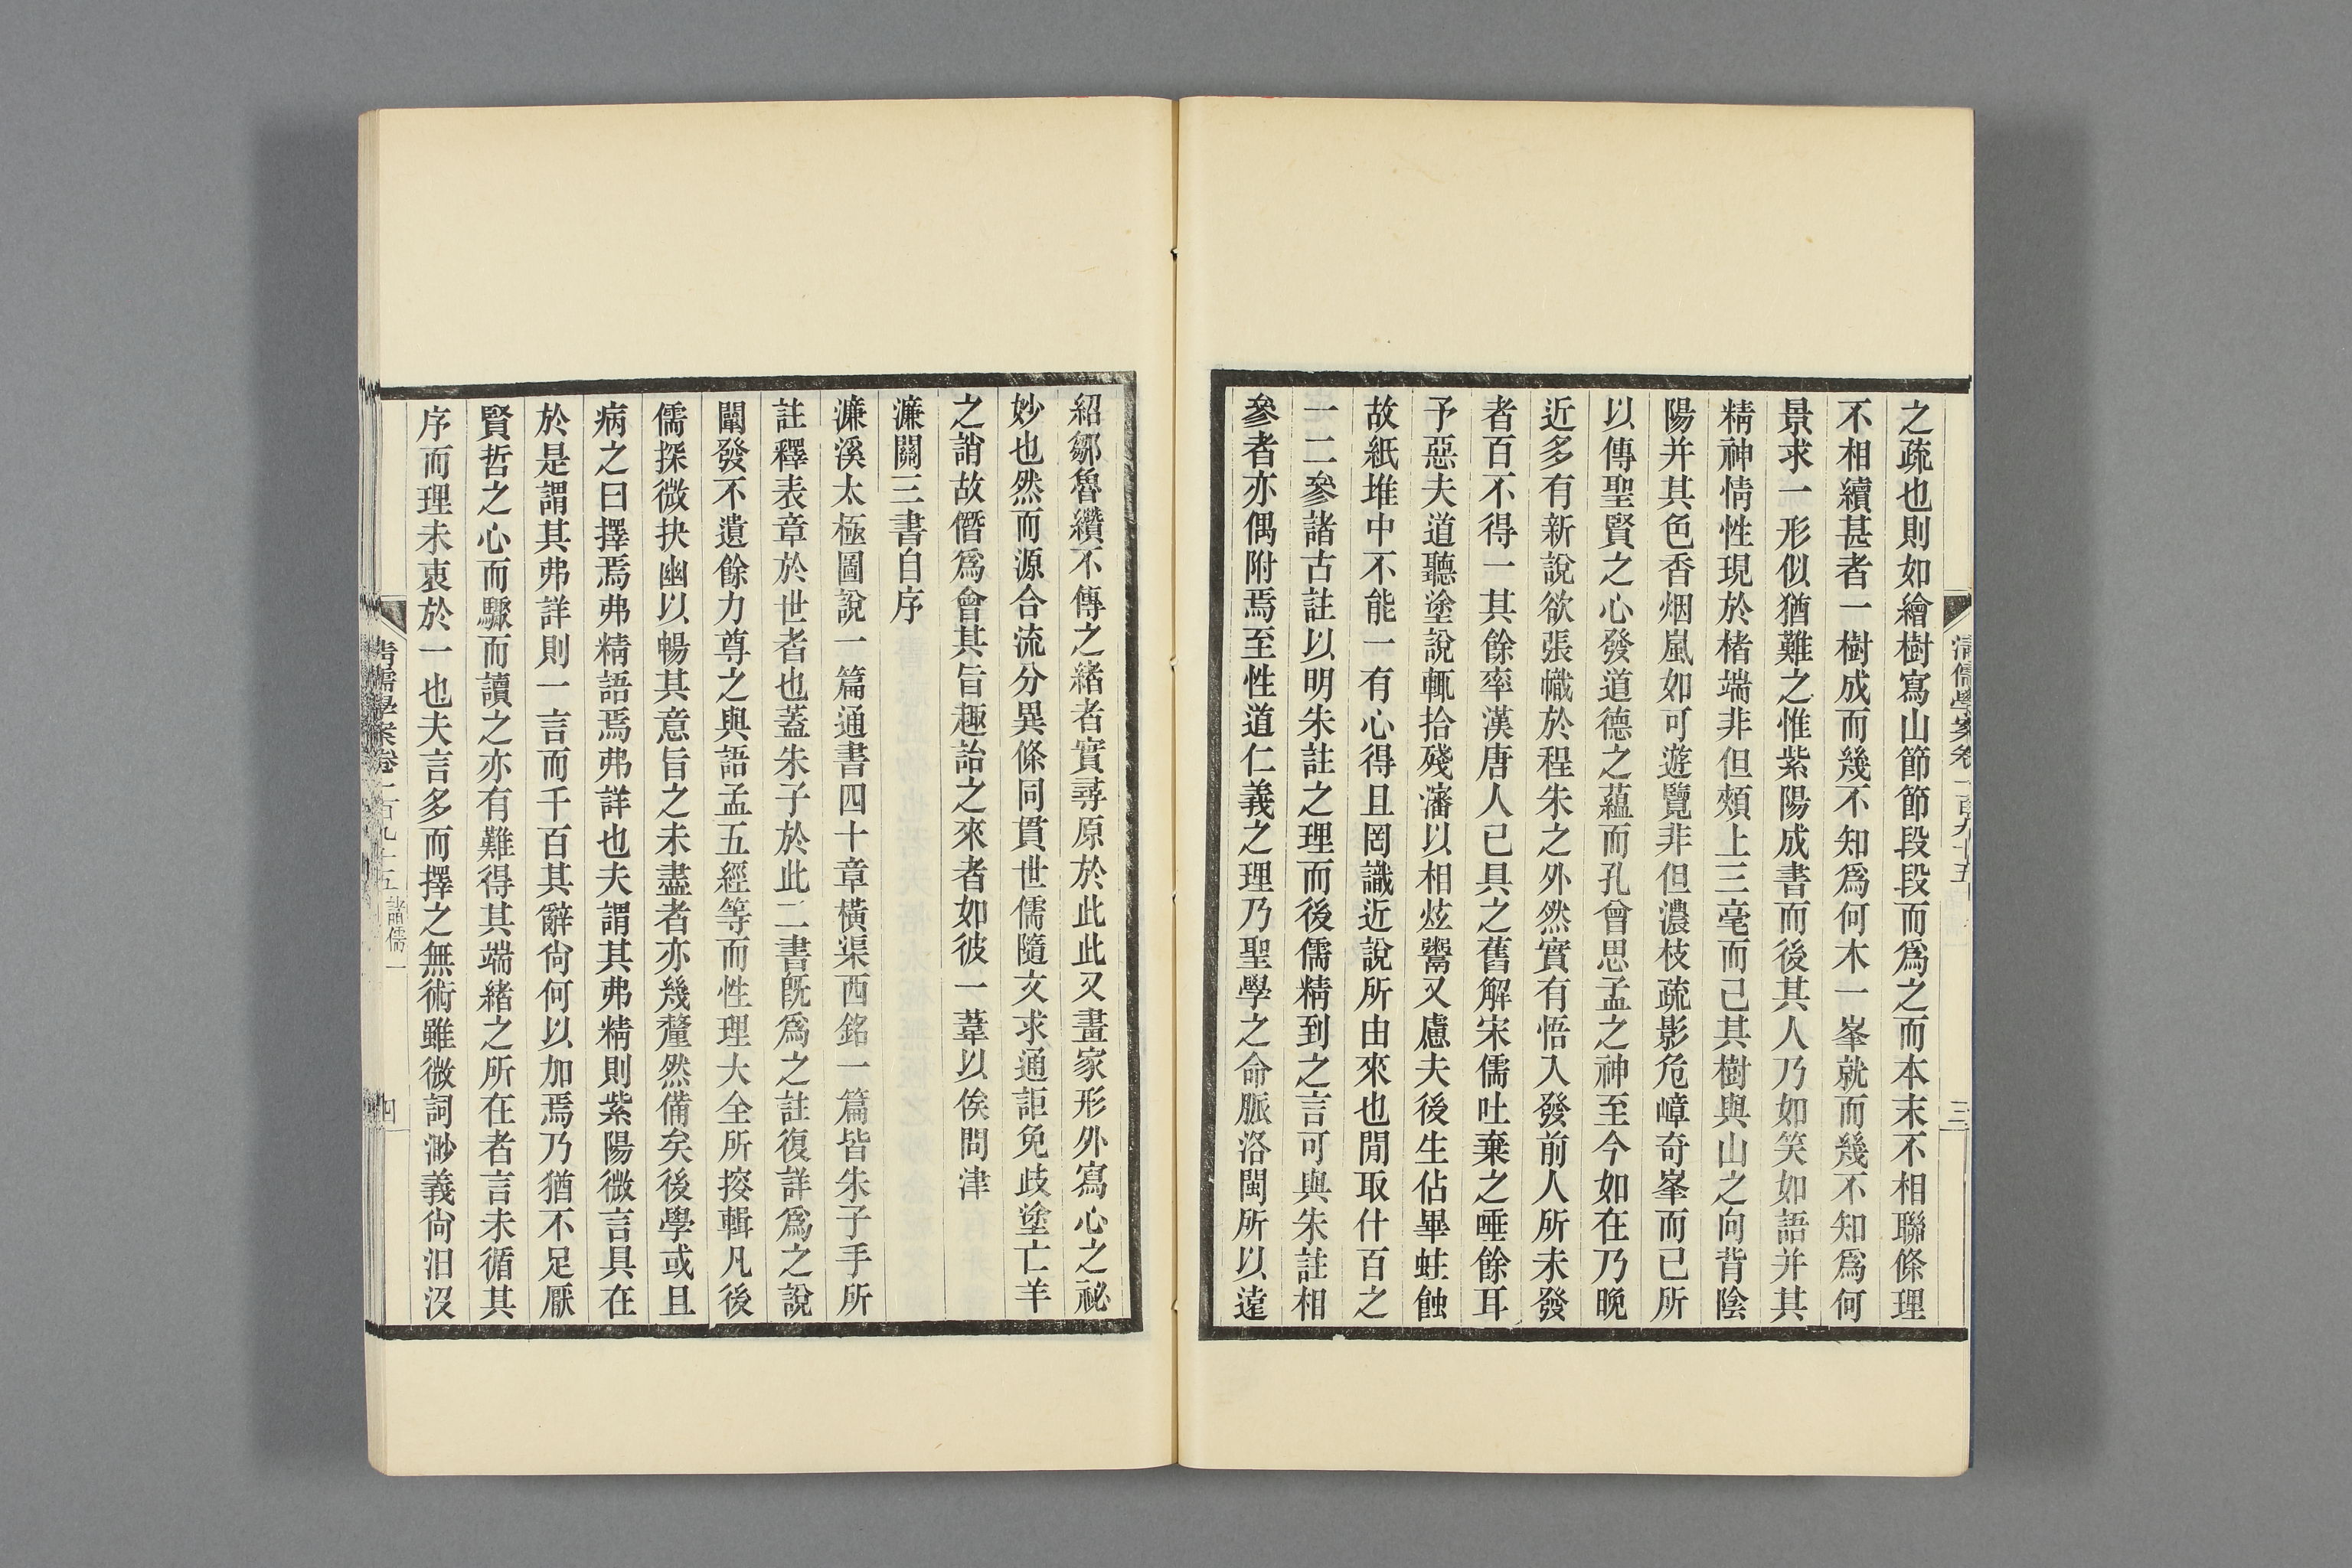 清儒學案卷一百九十五
三
之疏也則如繪樹寫山節節段段而爲之而本末不相聯條理
不相續甚者一樹成而幾不知爲何木一峯就而幾不知爲何
景求一形似猶難之惟紫陽成書而後其人乃如笑如語并其
精神情性現於楮端非但頰上三毫而已其樹與山之向背陰
陽并其色香烟嵐如可遊覽非但濃枝疏影危嶂奇峯而已所
以傳聖賢之心發道德之蘊而孔曾思孟之神至今如在乃晚
近多有新說欲張幟於程朱之外然實有悟入發前人所未發
者百不得一其餘率漢唐人已具之舊解宋儒吐棄之唾餘耳
予惡夫道聽塗說輒拾殘瀋以相炫鬻又慮夫後生佔畢蛀蝕
故紙堆中不能一有心得且罔識近說所由來也閒取什百之
一二參諸古註以明朱註之理而後儒精到之言可與朱註相
參者亦偶附焉至性道仁義之理乃聖學之命脈洛閩所以遠
紹鄒魯纘不傳之緒者實尋原於此此又畫家形外寫心之祕
妙也然而源合流分異條同貫世儒隨文求通詎免歧塗亡羊
之誚故僭爲會其旨趣詒之來者如彼一葦以俟問津
濂關三書自序
濂溪太極圖說一篇通書四十章橫渠西銘一篇皆朱子手所
註釋表章於世者也蓋朱子於此二書既爲之註復詳爲之說
闡發不遺餘力尊之與語孟五經等而性理大全所挍輯凡後
儒探微抉幽以暢其意旨之未盡者亦幾釐然備矣後學或且
病之曰擇焉弗精語焉弗詳也夫謂其弗精則紫陽微言具在
於是謂其弗詳則一言而千百其辭尙何以加焉乃猶不足厭
賢哲之心而驟而讀之亦有難得其端緒之所在者言未循其
序而理未衷於一也夫言多而擇之無術雖微詞渺義尙汨沒
清儒學案卷一百九十五 諸儒一
四